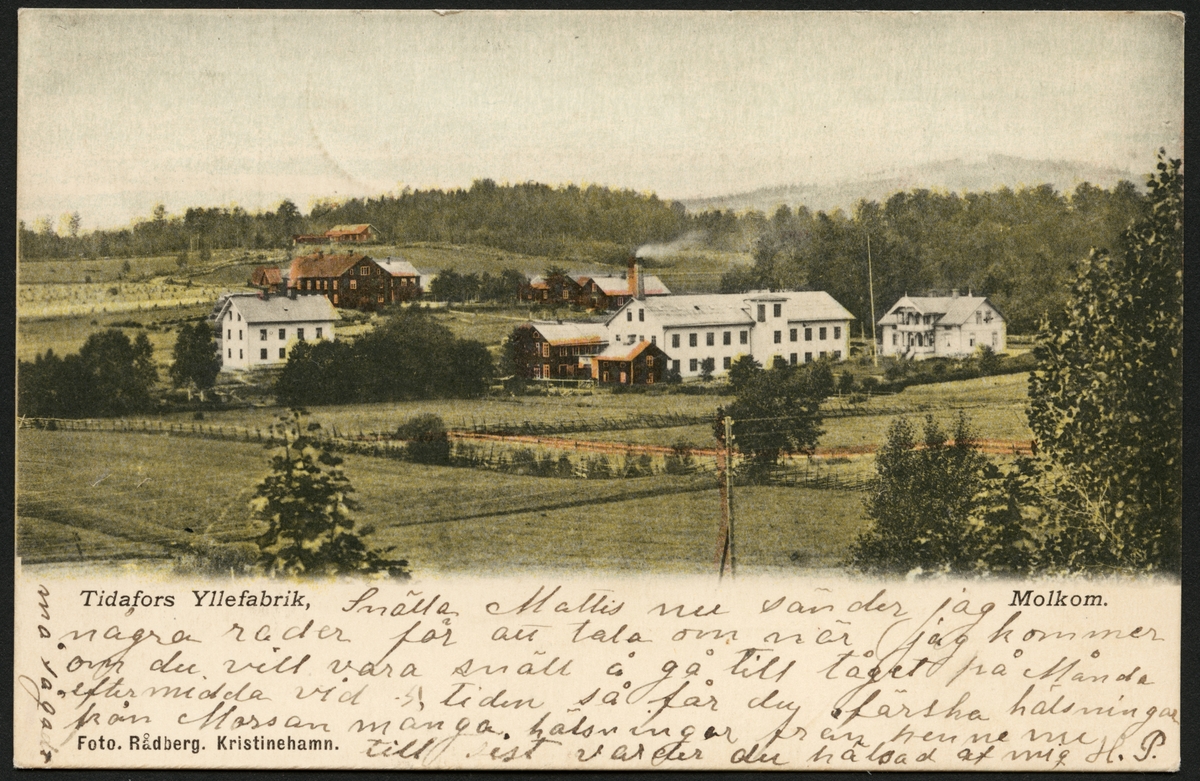 Tidafors Yllefabrik, Molkom.
Snälla Mallis nu sänder jag
några rader för att tala om när jag kommer
om du vill vara snäll å gå till tåget på Månda
eftermidda vid 5 tiden så får du färska hälsningar
från Morsan många hälsningar från henne nu
till sist varder du hälsad af mig H. P.
Foto. Rådberg. Kristinehamn.
må